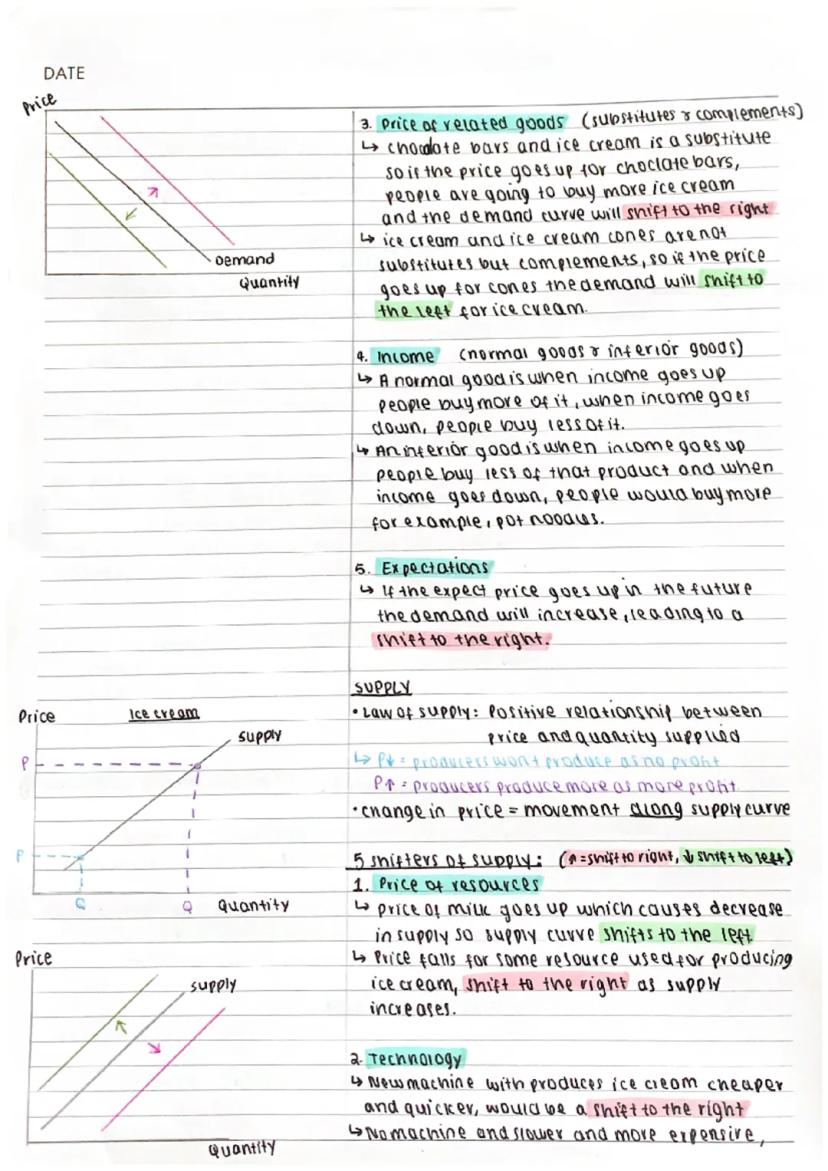 DATE
Price
Demand
Quantity
3. Price of related goods (substitutes & complements)
↳ chocolate bars and ice cream is a substitute
so if the price goes up for choclate bars,
people are going to buy more ice cream
and the demand curve will shift to the right
↳ ice cream and ice cream cones are not
substitutes but complements, so if the price
goes up for cones the demand will shift to
the left for ice cream.
4. Income (normal goods & inferior goods)
↳ A normal good is when income goes up
people buy more of it, when income goes
down, people buy less of it.
↳ An inferior good is when income goes up
people buy less of that product and when
income goes down, people would buy more
for example, pot noodus.
5. Expectations
↳ If the expect price goes up in the future
the demand will increase, leading to a
shift to the right.
Price
Ice cream
supply
P
P
Q
Q
Quantity
SUPPLY
• Law of supply: Positive relationship between
price and quantity supplied
↳ P↓ = producers wont produce as no profit
P↑ = producers produce more as more profit
• change in price = movement along supply curve
5 shifters of supply: (↑=shift to right, ↓ shift to left)
1. Price of resources
↳ price of milk goes up which causes decrease
in supply so supply curve shifts to the left
↳ Price falls for some resource used for producing
ice cream, shift to the right as supply
increases.
Price
supply
Quantity
2. Technology
↳ New machine with produces ice cream cheaper
and quicker, would be a shift to the right
↳ No machine and slower and more expensive,